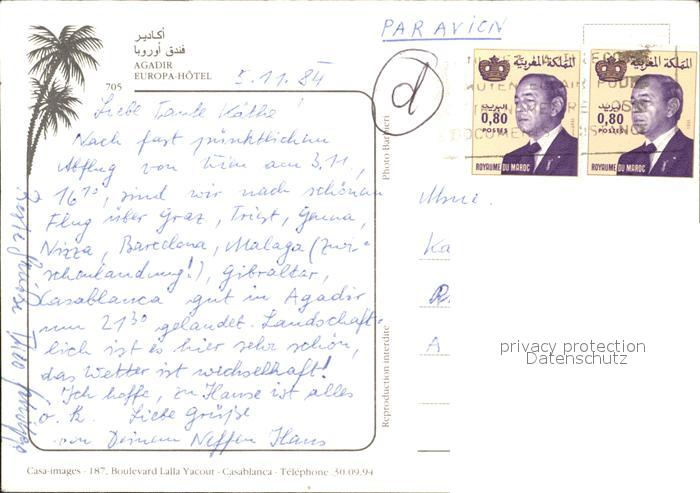 PAR AVION
أكادير
فندق أوروبا
AGADIR
EUROPA-HÔTEL
705
5.11.84
Liebe Tante Käthe!
Nach fast pünktlichem
Abflug von Wien am 3.11,
16¹⁰, sind wir nach schönem
Flug über Graz, Triest, Genua,
Nizza, Barcelona, Malaga (Zwi-
schenlandung!), Gibraltar,
Casablanca gut in Agadir
um 21³⁰ gelandet. Landschaft-
lich ist es hier sehr schön,
das Wetter ist wechselhaft!
Ich hoffe, zu Hause ist alles
o.k. Liebe Grüße
von Deinem Neffen Hans
Beste Grüße
d
المملكة المغربية
البريد
0,80
POSTES
ROYAUME DU MAROC
المملكة المغربية
البريد
0,80
POSTES
ROYAUME DU MAROC
Mme.
Ka
R
A
Photo Barbieri
Reproduction interdite
privacy protection
Datenschutz
Casa-images - 187, Boulevard Lalla Yacout - Casablanca - Téléphone 30.09.94